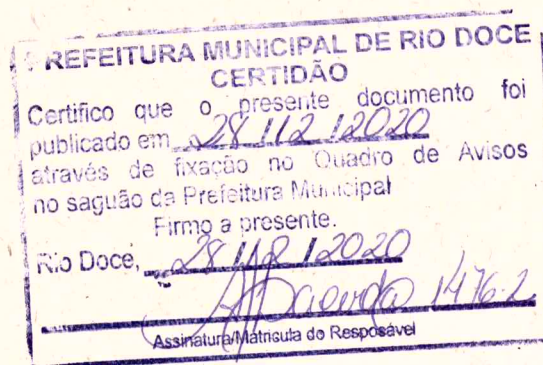 PREFEITURA MUNICIPAL DE RIO DOCE
CERTIDÃO
Certifico que o presente documento foi
publicado em 28/12/2020
através de fixação no Quadro de Avisos
no saguão da Prefeitura Municipal
Firmo a presente.
Rio Doce, 28/12/2020
1476-2
Assinatura/Mátricula do Resposável